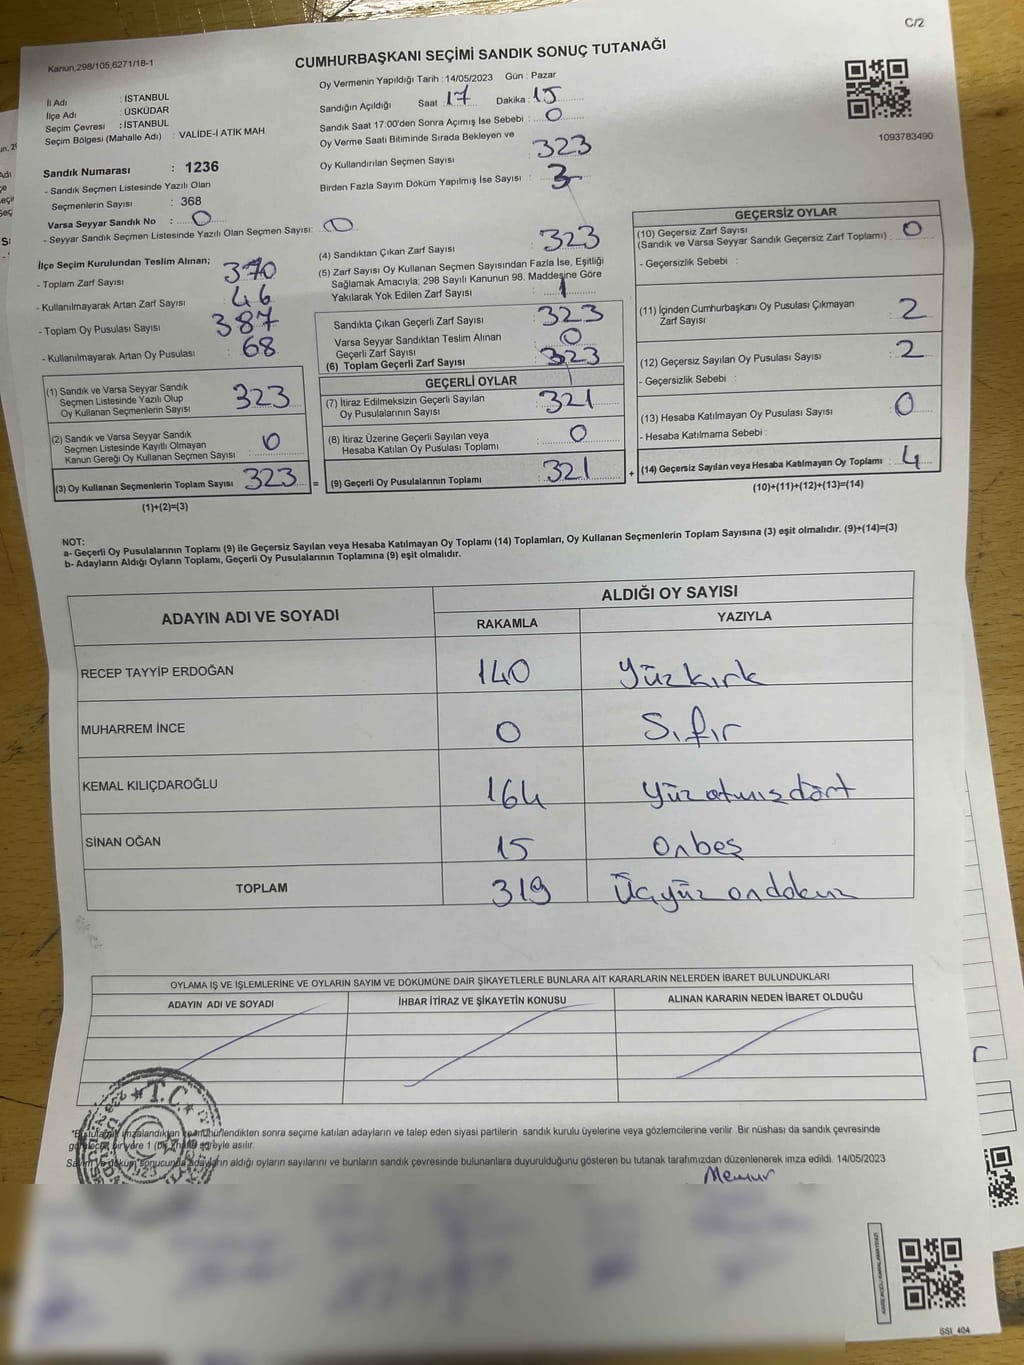 C/2
Kanun,298/105,6271/18-1
CUMHURBAŞKANI SEÇİMİ SANDIK SONUÇ TUTANAĞI
Oy Vermenin Yapıldığı Tarih : 14/05/2023 Gün : Pazar
İl Adı : İSTANBUL
İlçe Adı : ÜSKÜDAR
Seçim Çevresi : İSTANBUL
Seçim Bölgesi (Mahalle Adı) : VALİDE-İ ATİK MAH.
Sandığın Açıldığı Saat : 17 Dakika : 15
Sandık Saat 17:00'den Sonra Açımış İse Sebebi : 0
Oy Verme Saati Bitiminde Sırada Bekleyen ve
Oy Kullandırılan Seçmen Sayısı : 323
Birden Fazla Sayım Döküm Yapılmış İse Sayısı : 3
1093783490
Sandık Numarası : 1236
- Sandık Seçmen Listesinde Yazılı Olan
Seçmenlerin Sayısı : 368
Varsa Seyyar Sandık No : 0
- Seyyar Sandık Seçmen Listesinde Yazılı Olan Seçmen Sayısı: 0
İlçe Seçim Kurulundan Teslim Alınan;
- Toplam Zarf Sayısı : 370
- Kullanılmayarak Artan Zarf Sayısı : 46
- Toplam Oy Pusulası Sayısı : 387
- Kullanılmayarak Artan Oy Pusulası : 68
(1) Sandık ve Varsa Seyyar Sandık
Seçmen Listesinde Yazılı Olup
Oy Kullanan Seçmenlerin Sayısı : 323
(2) Sandık ve Varsa Seyyar Sandık
Seçmen Listesinde Kayıtlı Olmayan
Kanun Gereği Oy Kullanan Seçmen Sayısı : 0
(3) Oy Kullanan Seçmenlerin Toplam Sayısı : 323
(1)+(2)=(3)
(4) Sandıktan Çıkan Zarf Sayısı : 323
(5) Zarf Sayısı Oy Kullanan Seçmen Sayısından Fazla İse, Eşitliği
Sağlamak Amacıyla; 298 Sayılı Kanunun 98. Maddesine Göre
Yakılarak Yok Edilen Zarf Sayısı : 1
Sandıkta Çıkan Geçerli Zarf Sayısı : 323
Varsa Seyyar Sandıktan Teslim Alınan
Geçerli Zarf Sayısı : 0
(6) Toplam Geçerli Zarf Sayısı : 323
GEÇERLİ OYLAR
(7) İtiraz Edilmeksizin Geçerli Sayılan
Oy Pusulalarının Sayısı : 321
(8) İtiraz Üzerine Geçerli Sayılan veya
Hesaba Katılan Oy Pusulası Toplamı : 0
= (9) Geçerli Oy Pusulalarının Toplamı : 321
GEÇERSİZ OYLAR
(10) Geçersiz Zarf Sayısı
(Sandık ve Varsa Seyyar Sandık Geçersiz Zarf Toplamı) : 0
- Geçersizlik Sebebi :
(11) İçinden Cumhurbaşkanı Oy Pusulası Çıkmayan
Zarf Sayısı : 2
(12) Geçersiz Sayılan Oy Pusulası Sayısı : 2
- Geçersizlik Sebebi :
(13) Hesaba Katılmayan Oy Pusulası Sayısı : 0
- Hesaba Katılmama Sebebi :
+ (14) Geçersiz Sayılan veya Hesaba Katılmayan Oy Toplamı : 4
(10)+(11)+(12)+(13)=(14)
NOT:
a- Geçerli Oy Pusulalarının Toplamı (9) ile Geçersiz Sayılan veya Hesaba Katılmayan Oy Toplamı (14) Toplamları, Oy Kullanan Seçmenlerin Toplam Sayısına (3) eşit olmalıdır. (9)+(14)=(3)
b- Adayların Aldığı Oyların Toplamı, Geçerli Oy Pusulalarının Toplamına (9) eşit olmalıdır.
ADAYIN ADI VE SOYADI ALDIĞI OY SAYISI
RAKAMLA YAZIYLA
RECEP TAYYİP ERDOĞAN 140 Yüzkırk
MUHARREM İNCE 0 Sıfır
KEMAL KILIÇDAROĞLU 164 Yüzatmışdört
SİNAN OĞAN 15 Onbeş
TOPLAM 319 Üçyüz ondokuz
OYLAMA İŞ VE İŞLEMLERİNE VE OYLARIN SAYIM VE DÖKÜMÜNE DAİR ŞİKAYETLERLE BUNLARA AİT KARARLARIN NELERDEN İBARET BULUNDUKLARI
ADAYIN ADI VE SOYADI İHBAR İTİRAZ VE ŞİKAYETİN KONUSU ALINAN KARARIN NEDEN İBARET OLDUĞU
T.C.
sonra seçime katılan adayların ve talep eden siyasi partilerin sandık kurulu üyelerine veya gözlemcilerine verilir .Bir nüshası da sandık çevresinde
asılır.
aldığı oyların sayılarını ve bunların sandık çevresinde bulunanlara duyurulduğunu gösteren bu tutanak tarafımızdan düzenlenerek imza edildi. 14/05/2023
Memur
SSI_404